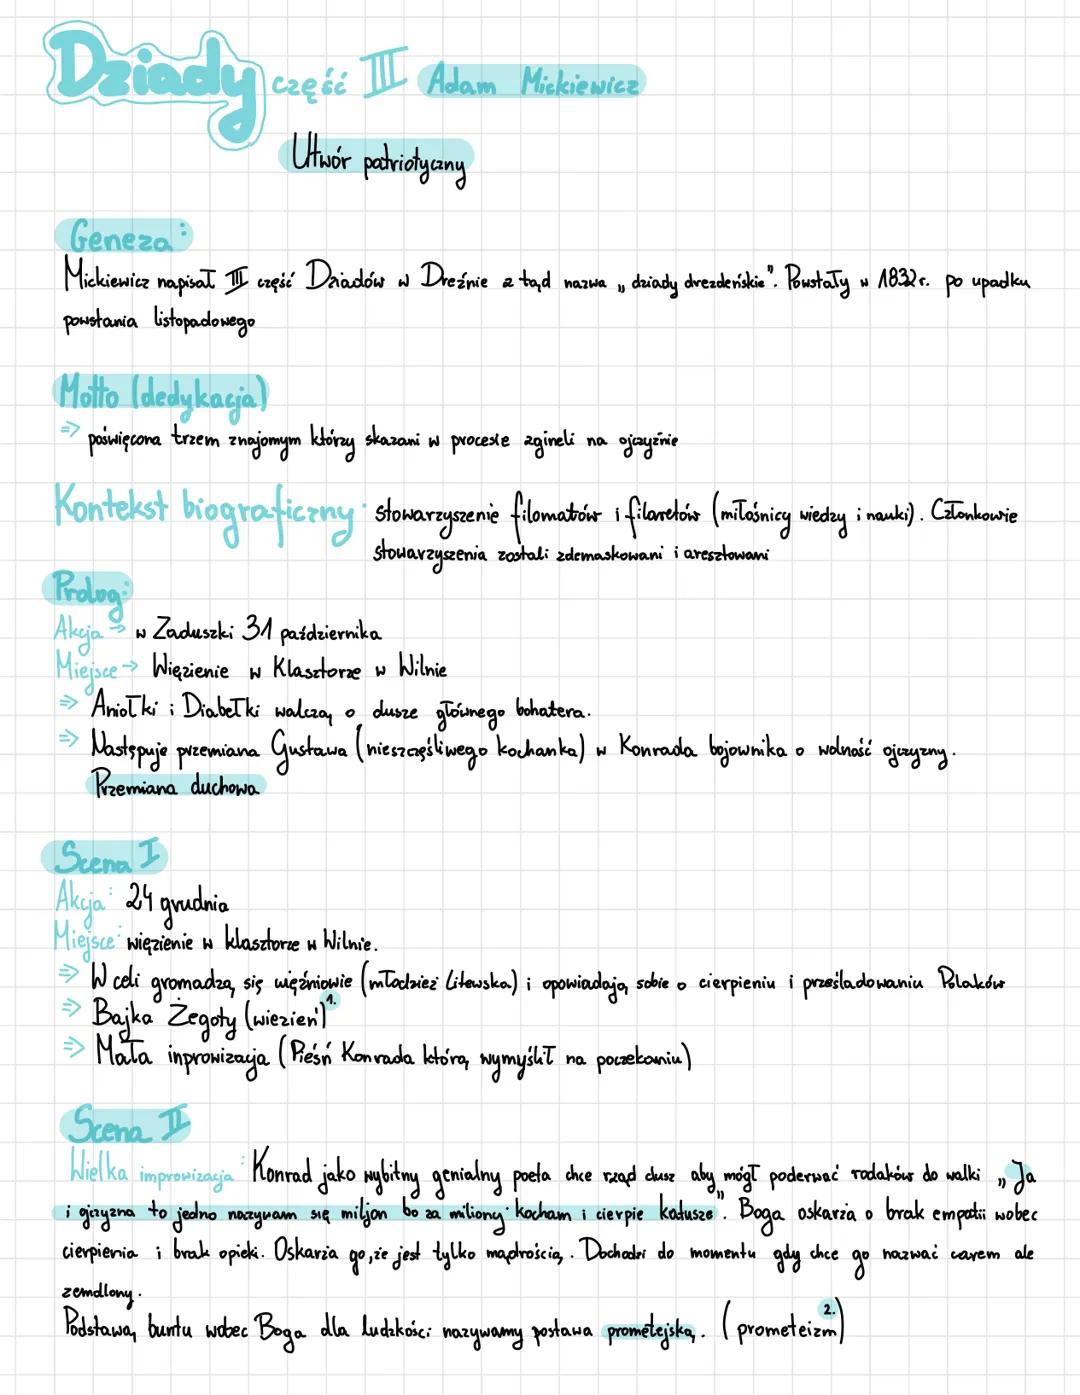 Dziady część III Adam Mickiewicz
Utwór patriotyczny
Geneza:
Mickiewicz napisał III część Dziadów w Dreźnie z tąd nazwa „dziady drezdeńskie". Powstały w 1832r. po upadku
powstania listopadowego
Motto (dedykacja)
⇒ poświęcona trzem znajomym którzy skazani w procesie zgineli na ojczyźnie
Kontekst biograficzny: stowarzyszenie filomatów i filaretów (miłośnicy wiedzy i nauki). Członkowie
stowarzyszenia zostali zdemaskowani i aresztowani
Prolog:
Akcja → w Zaduszki 31 października
Miejsce → Więzienie w Klasztorze w Wilnie
⇒ Aniołki i Diabełki walczą o dusze głównego bohatera.
⇒ Następuje przemiana Gustawa (nieszczęśliwego kochanka) w Konrada bojownika o wolność ojczyzny.
Przemiana duchowa
Scena I
Akcja: 24 grudnia
Miejsce: więzienie w klasztorze w Wilnie.
⇒ W celi gromadzą się więźniowie (młodzież Litewska) i opowiadają sobie o cierpieniu i prześladowaniu Polaków
⇒ Bajka Żegoty (wiezień) 1.
⇒ Mała inprowizacja (Pieśń Konrada którą wymyślił na poczekaniu)
Scena II
Wielka improwizacja: Konrad jako wybitny genialny poeta chce rząd dusz aby mógł poderwać rodaków do walki „Ja
i ojczyzna to jedno nazywam się miljon bo za miliony kocham i cierpie katusze". Boga oskarża o brak empatii wobec
cierpienia i brak opieki. Oskarża go, że jest tylko mądrością. Dochodzi do momentu gdy chce go nazwać carem ale
zemdlony.
Podstawą buntu wobec Boga dla ludzkości nazywamy postawa prometejską. (prometeizm 2.)